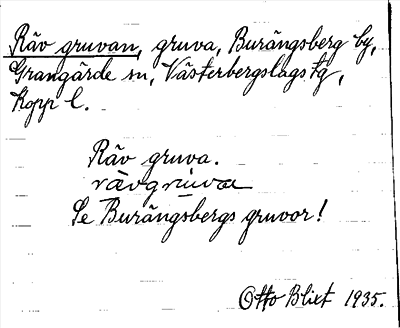 Räv gruvan, gruva, Burängsberg by,
Grangärde sn, Västerbergslags tg,
Kopp l.
Räv gruva.
rävgruva
Se Burängsbergs gruvor!
Otto Blixt 1935.